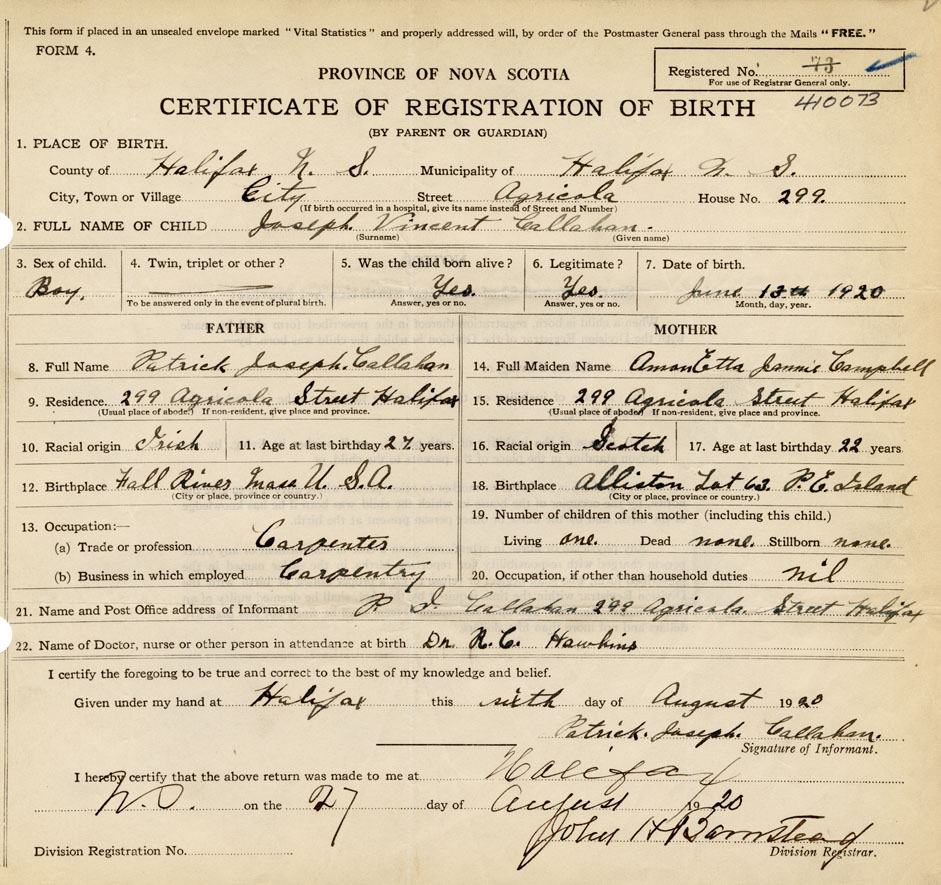 This form if placed in an unsealed envelope marked "Vital Statistics" and properly addressed will, by order of the Postmaster General pass through the Mails "FREE."
FORM 4.
Registered No. 73
For use of Registrar General only.
PROVINCE OF NOVA SCOTIA
CERTIFICATE OF REGISTRATION OF BIRTH 410073
(BY PARENT OR GUARDIAN)
1. PLACE OF BIRTH.
County of Halifax N. S. Municipality of Halifax N. S.
City, Town or Village City Street Agricola House No. 299
(If birth occurred in a hospital, give its name instead of Street and Number)
2. FULL NAME OF CHILD Joseph Vincent Callahan.
(Surname) (Given name)
3. Sex of child. 4. Twin, triplet or other? 5. Was the child born alive? 6. Legitimate? 7. Date of birth.
Boy, Yes. Yes. June 13th 1920
To be answered only in the event of plural birth. Answer, yes or no. Answer, yes or no. Month, day, year.
FATHER MOTHER
8. Full Name Patrick Joseph. Callahan 14. Full Maiden Name Etta Jannie Campbell
9. Residence. 299 Agricola Street Halifax 15. Residence 299 Agricola Street Halifax
(Usual place of abode) If non-resident, give place and province. (Usual place of abode) If non-resident, give place and province.
10. Racial origin Irish 11. Age at last birthday 27 years. 16. Racial origin Scotch 17. Age at last birthday 22 years.
12. Birthplace Fall River Mass U. S. A. 18. Birthplace Alliston Lot 63. P. E. Island
(City or place, province or country.) (City or place, province or country.)
13. Occupation:— 19. Number of children of this mother (including this child.)
(a) Trade or profession Carpenter Living one. Dead none. Stillborn none.
(b) Business in which employed Carpentry 20. Occupation, if other than household duties nil
21. Name and Post Office address of Informant P J Callahan 299 Agricola. Street Halifax
22. Name of Doctor, nurse or other person in attendance at birth Dr. Hawkins
I certify the foregoing to be true and correct to the best of my knowledge and belief.
Given under my hand at Halifax this sixth day of August 1920
Patrick. Joseph. Callahan.
Signature of Informant.
I hereby certify that the above return was made to me at Halifax
N.S. on the 27 day of August 1920
John H Barnstead
Division Registration No. Division Registrar.